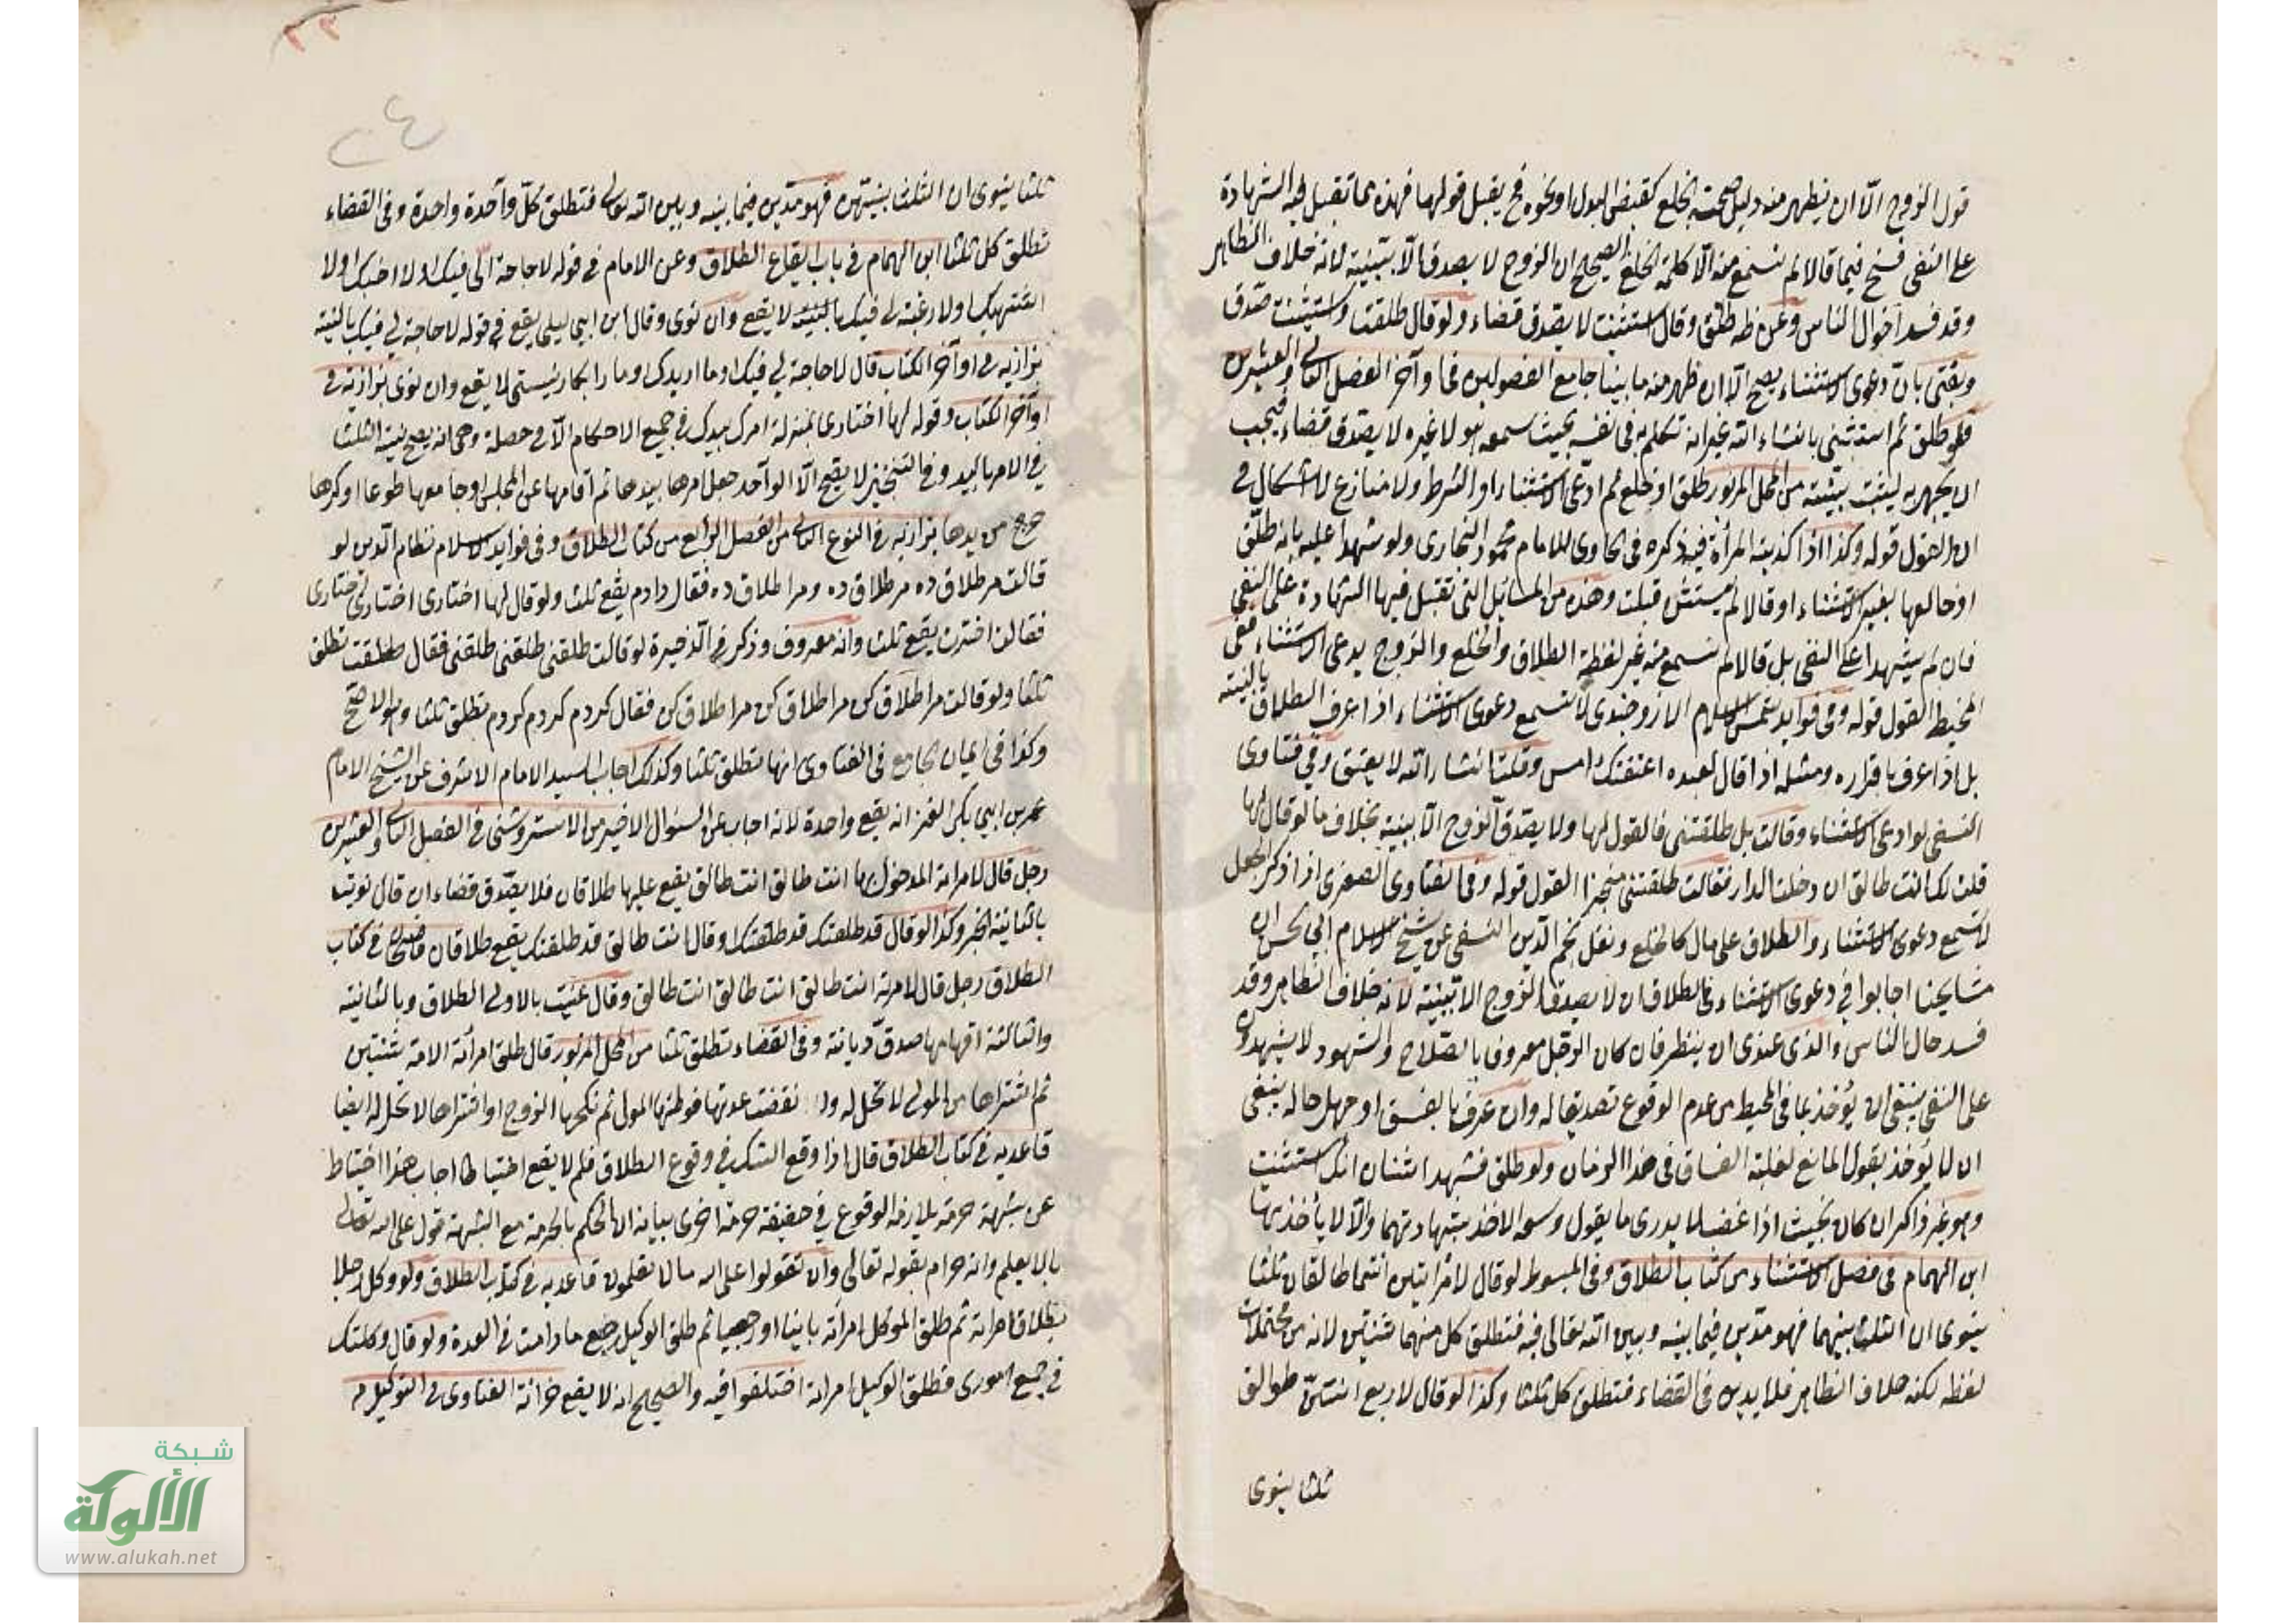 قول الزوج الا ان يظهر منه دليل صحة الخلع كقبض البدل او نحوه فح يقبل قولها فهذه مما تقبل فيه الشهادة
على النفى فسخ فيما قالا لم نسمع منه الا كلمة الخلع الصحيح ان الزوج لا يصدق الا ببينة لانه خلاف الظاهر
وقد فسد احوال الناس وعن ظه طلق وقال استثنيت لا يصدق قضاء ولو قال طلقت واستثنيت صدق
ويفتى بان دعوى الاستثناء يصح الا ان ظهر منه ما بينا جامع الفصولين فى اواخر الفصل الثانى والعشرين
فلو طلق ثم استثنى بانشاء الله غير انه تكلم به فى نفسه بحيث سمعه هو لا غيره لا يصدق قضاء فيجب
ان يجهر به ليثبت ببينة من المحل المزبور طلق او خلع ثم ادعى الاستثناء او الشرط ولا منازع لا اشكال فى
ان القول قوله وكذا اذا كذبته المرأة فيه ذكره فى الحاوى للامام محمود البخارى ولو شهدا عليه بانه طلق
او خالعها بغير الاستثناء او قالا لم يستثن قبلت وهذه من المسائل التى تقبل فيها الشهادة على النفى
فان لم يشهدا على النفى بل قالا لم نسمع منه غير لفظة الطلاق والخلع والزوج يدعى الاستثناء ففى
المحيط القول قوله وفى فوايد شمس الاسلام الاوزوجندى لا تسمع دعوى الاستثناء اذا عرف الطلاق بالبينة
بل اذا عرف باقراره ومثله اذا قال لعبده اعتقتك امس وقلت انشاء الله لا يعتق وفى فتاوى
النسفى لو ادعى الاستثناء وقالت بل طلقتنى فالقول لها ولا يصدق الزوج الا ببينة بخلاف ما لو قال لها
قلت لك انت طالق ان دخلت الدار فقالت طلقتنى منجزا القول قوله وفى الفتاوى الصغرى اذا ذكر الجعل
لا تسمع دعوى الاستثناء والطلاق على مال كالخلع ونقل نجم الدين النسفى عن شيخ الاسلام ابى الحسن ان
مشايخنا اجابوا فى دعوى الاستثناء فى الطلاق ان لا يصدق الزوج الا ببينة لانه خلاف الظاهر وقد
فسد حال الناس والذى عندى ان ينظر فان كان الرجل معروفا بالصلاح والشهود لا يشهدون
على النفى ينبغى ان يؤخذ بما فى المحيط من عدم الوقوع تصديقا له وان عرف بالفسق او جهل حاله ينبغى
ان لا يؤخذ بقول المانع لغلبة الفساق فى هذا الزمان ولو طلق فشهد اثنان انك استثنيت
وهو غير ذاكر ان كان بحيث اذا غضب لا يدرى ما يقول وسعه الاخذ بشهادتهما والا لا يأخذ بها
ابن الهمام فى فصل الاستثناء من كتاب الطلاق وفى المبسوط لو قال لامرأتين انتما طالقان ثلثا
ينوى ان الثلث بينهما فهو مدين فيما بينه وبين الله تعالى فيه فتطلق كل منهما ثنتين لانه من محتملات
لفظه لكنه خلاف الظاهر فلا يدين فى القضاء فتطلق كل ثلثا وكذا لو قال لاربع انتن طوالق
ثلثا ينوى
٢٤
ثلثا ينوى ان الثلث بينهن فهو مدين فيما بينه وبين الله تعالى فتطلق كل واحدة واحدة وفى القضاء
تطلق كل ثلثا ابن الهمام فى باب ايقاع الطلاق وعن الامام فى قوله لا حاجة لى فيك او لا احبك او لا
اشتهيك او لا رغبة لى فيك لا يقع وان نوى وقال ابن ابى ليلى يقع فى قوله لا حاجة لى فيك بالنية
بزازيه فى اواخر الكتاب قال لا حاجة لى فيك او ما اريدك او مرا بكار نيستى لا يقع وان نوى بزازيه فى
اواخر الكتاب وقوله لها اختارى بمنزلة امرك بيدك فى جميع الاحكام الا فى خصلة وهى انه يصح نية الثلث
فى الامر باليد وفى التخيير لا يقع الا الواحد جعل امرها بيدها ثم اقامها عن المجلس او جامعها طوعا او كرها
خرج من يدها بزازيه فى النوع الثانى من الفصل الرابع من كتاب الطلاق وفى فوايد الاسلام نظام الدين لو
قالت مرا طلاق ده مرا طلاق ده ومرا طلاق ده فقال دادم يقع ثلث ولو قال لها اختارى اختارى اختارى
فقالت اخترت يقع ثلث وانه معروف وذكر فى الذخيرة لو قالت طلقنى طلقنى طلقنى فقال طلقت تطلق
ثلثا ولو قالت مرا طلاق كن مرا طلاق كن مرا طلاق كن فقال كردم كردم كردم تطلق ثلثا وهو الاصح
وكذا فى ايمان الجامع فى الفتاوى انها تطلق ثلثا وكذلك اجاب السيد الامام الاشرف عن الشيخ الامام
عمر بن ابى بكر انه يقع واحدة لانه اجاب عن السؤال الاخير من الاستروشنى فى الفصل الثانى والعشرين
رجل قال لامرأته المدخول بها انت طالق انت طالق يقع عليها طلاقان فلا يصدق قضاء ان قال نويت
بالثانية الخبر وكذا لو قال قد طلقتك قد طلقتك او قال انت طالق قد طلقتك يقع طلاقان قاضيخان فى كتاب
الطلاق رجل قال لامرأته انت طالق انت طالق انت طالق وقال عنيت بالاولى الطلاق وبالثانية
والثالثة افهامها صدق ديانة وفى القضاء تطلق ثلثا من المحل المزبور قال طلق امرأته الامة ثنتين
ثم اشتراها من المولى لا تحل له ولو انقضت عدتها فوطئها المولى ثم نكحها الزوج او اشتراها لا تحل له ايضا
قاعديه فى كتاب الطلاق قال اذا وقع الشك فى وقوع الطلاق فلم لا يقع احتياطا اجاب هذا احتياط
عن شبهة حرمة يلازمه الوقوع فى حقيقة حرمة اخرى بيانه ان الحكم بالحرمة مع الشبهة قول على الله تعالى
بما لا يعلم وانه حرام بقوله تعالى وان تقولوا على الله ما لا تعلمون قاعديه فى كتاب الطلاق ولو وكل رجلا
بطلاق امرأته ثم طلق الموكل امرأته باينا او رجعيا ثم طلق الوكيل يقع ما دامت فى العدة ولو قال وكلتك
فى جميع امورى فطلق الوكيل امرأته اختلفوا فيه والصحيح انه لا يقع خزانة الفتاوى فى التوكيل م
شبكة
الألوكة
www.alukah.net